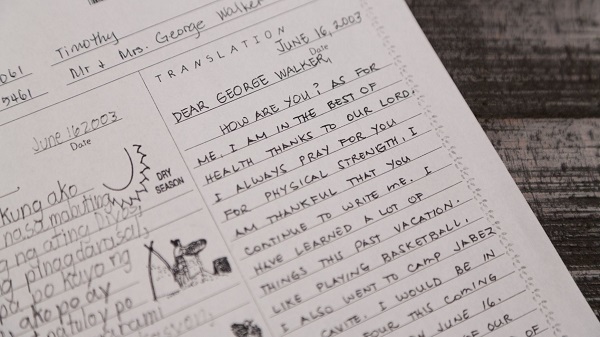 061
5461
Timothy
Mr & Mrs. George Walker
June 16 2003
Date
DRY
SEASON
kung ako
nasa mabuting
ng ating
ng pinagdarasal
pa po kayo ng
ako po ay
patuloy po
TRANSLATION
JUNE 16, 2003
Date
DEAR GEORGE WALKER,
HOW ARE YOU? AS FOR
ME, I AM IN THE BEST OF
HEALTH THANKS TO OUR LORD.
I ALWAYS PRAY FOR YOU
FOR PHYSICAL STRENGTH. I
AM THANKFUL THAT YOU
CONTINUE TO WRITE ME. I
HAVE LEARNED A LOT OF
THINGS THIS PAST VACATION.
LIKE PLAYING BASKETBALL.
I ALSO WENT TO CAMP JABEZ
CAVITE. I WOULD BE IN
FOUR THIS COMING
ON JUNE 16.
OF OUR
OF